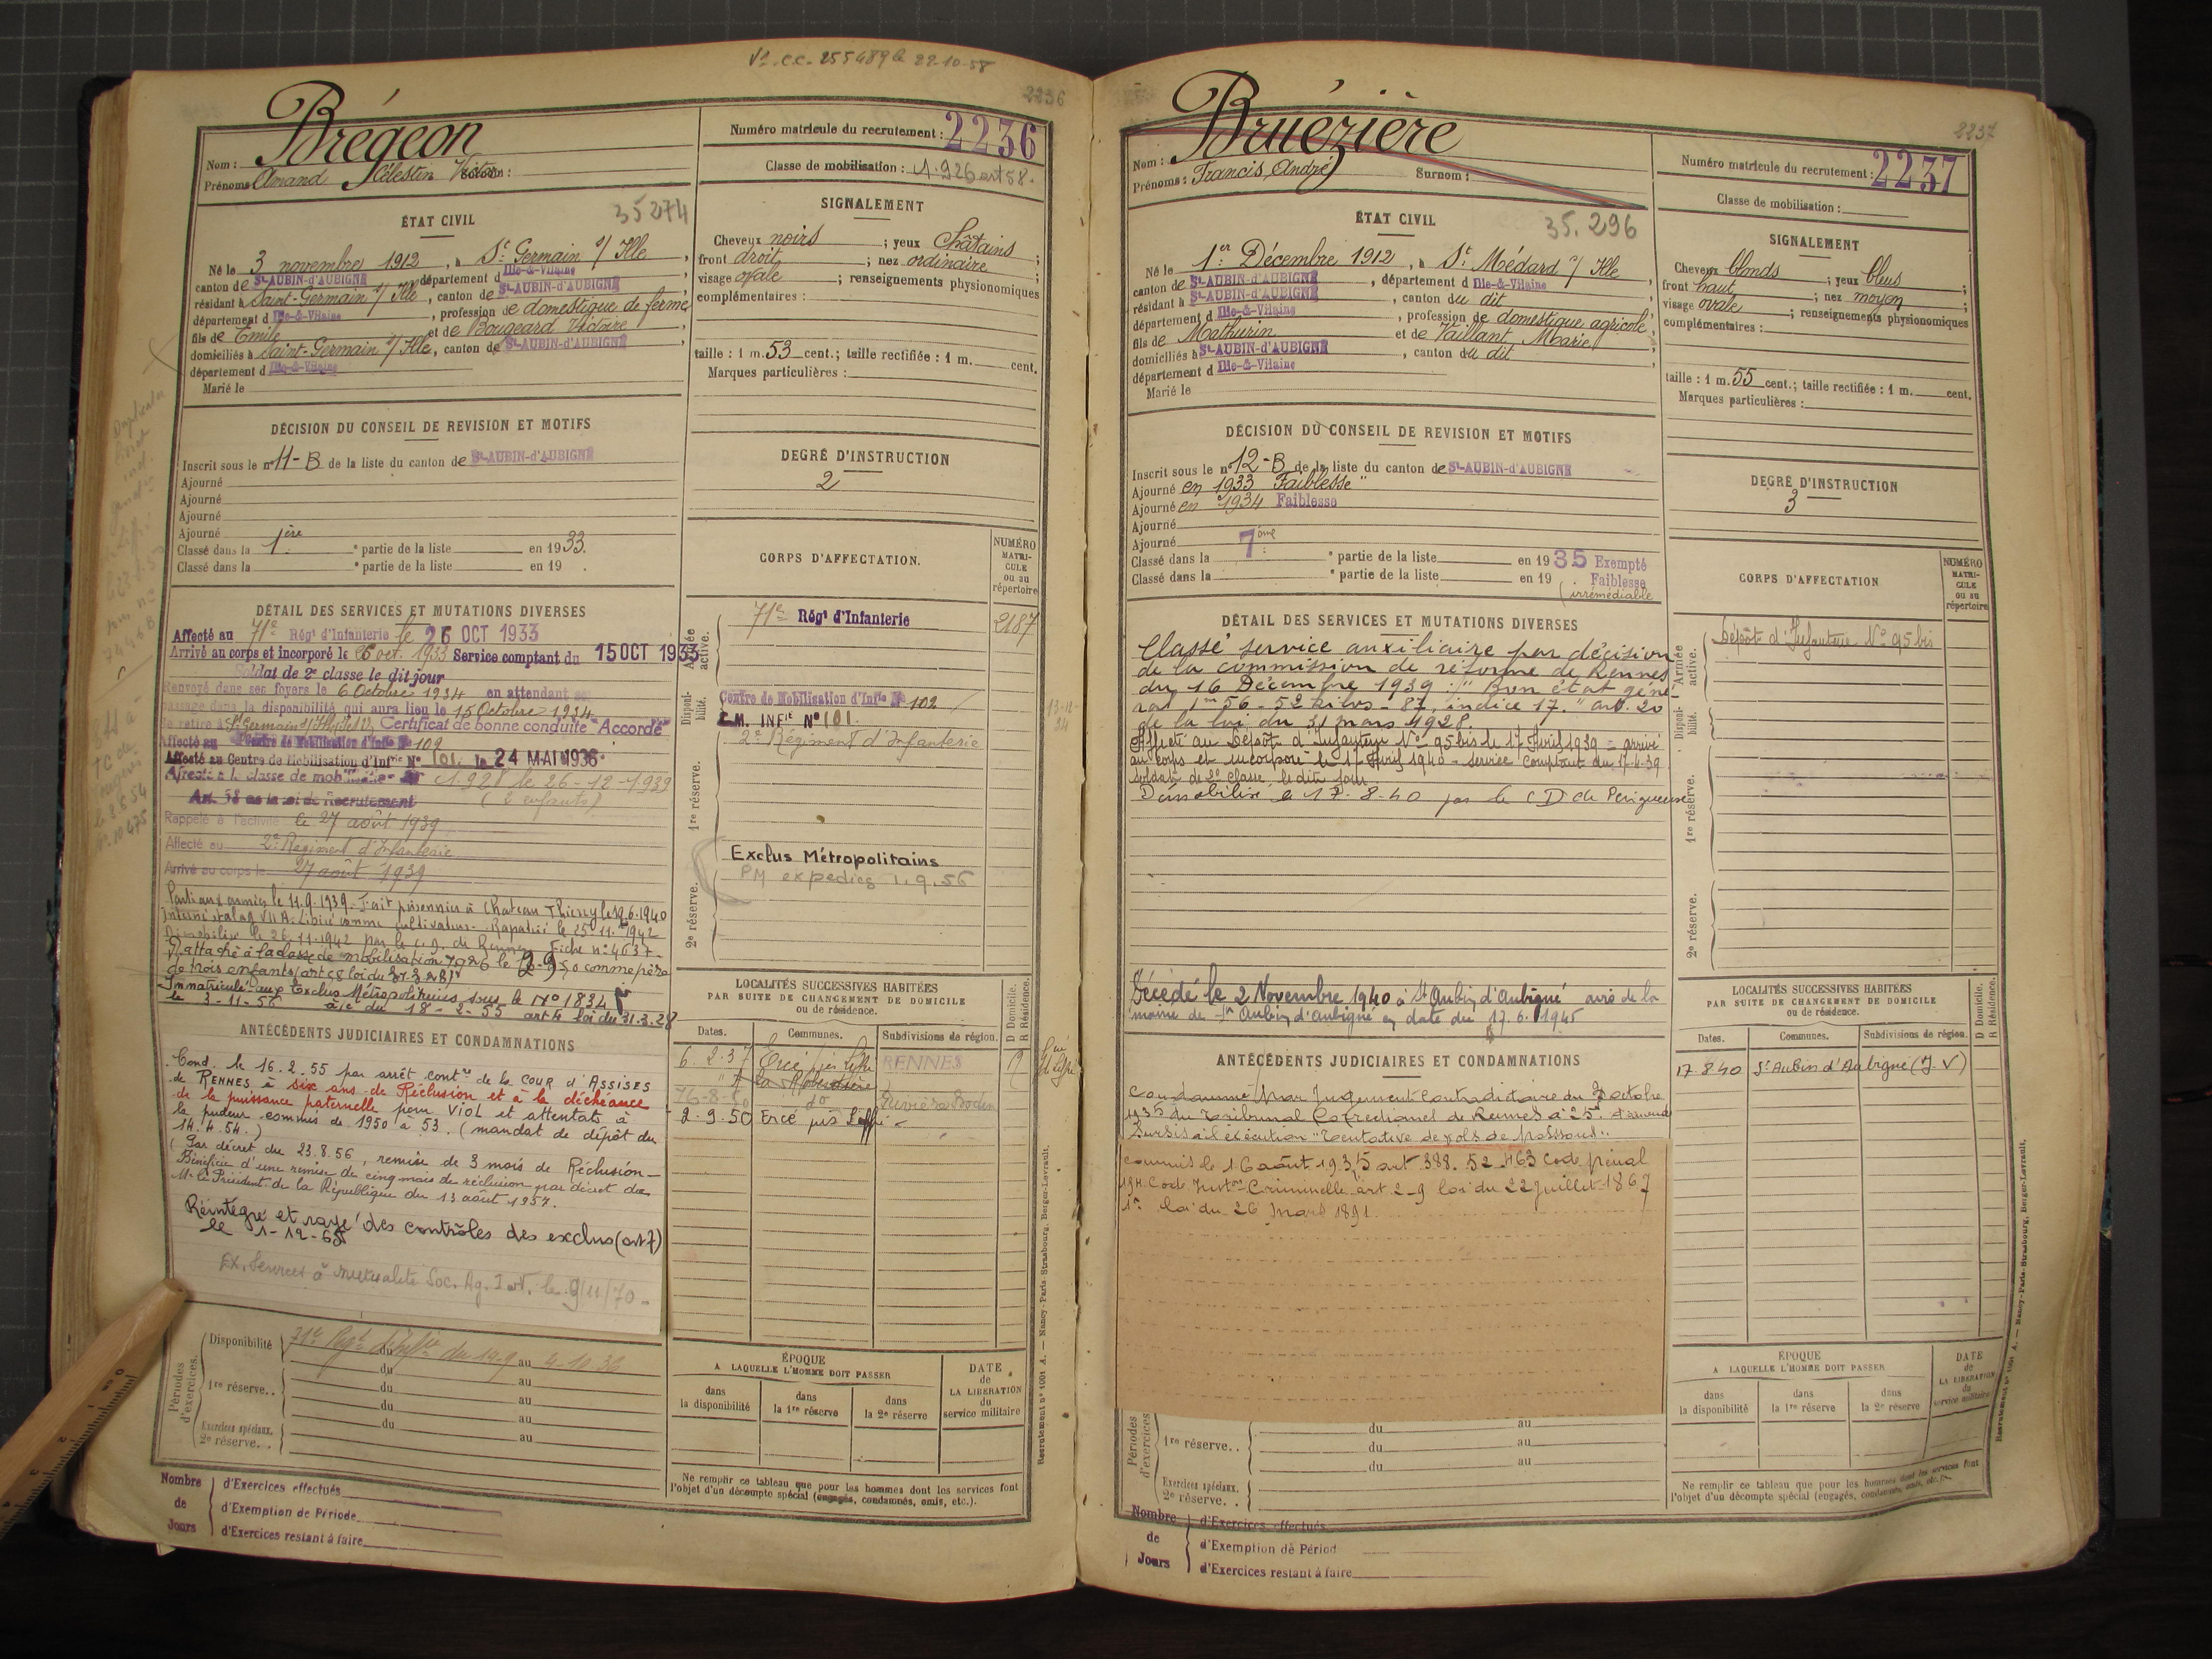 Vº. C.C. 255489 le 22-10-58
2236
Nom : Brégeon
Prénoms : Amand Célestin Victor
Numéro matricule du recrutement : 2236
Classe de mobilisation : 1.926 art 58.
ÉTAT CIVIL
35274
Né le 3 novembre 1912, à St Germain s/ Ille,
canton de St-AUBIN-d'AUBIGNÉ département d Ille-&-Vilaine
résidant à Saint-Germain s/ Ille, canton de St-AUBIN-d'AUBIGNÉ
département d Ille-&-Vilaine, profession de domestique de ferme
fils de Emile et de Bougeard Victoire,
domiciliés à Saint-Germain s/ Ille, canton de St-AUBIN-d'AUBIGNÉ
département d Ille-&-Vilaine
Marié le
SIGNALEMENT
Cheveux noirs ; yeux châtains ;
front droit ; nez ordinaire ;
visage ovale ; renseignements physionomiques
complémentaires :
taille : 1 m. 53 cent.; taille rectifiée : 1 m. cent.
Marques particulières :
DÉCISION DU CONSEIL DE REVISION ET MOTIFS
Inscrit sous le nº 11-B de la liste du canton de St-AUBIN-d'AUBIGNÉ
Ajourné
Ajourné
Ajourné
Ajourné
Classé dans la 1ère partie de la liste en 1933.
Classé dans la e partie de la liste en 19 .
DEGRÉ D'INSTRUCTION
2
DÉTAIL DES SERVICES ET MUTATIONS DIVERSES
Affecté au 71e Régt d'Infanterie le 26 OCT 1933
Arrivé au corps et incorporé le 26 oct. 1933 Service comptant du 15 OCT 1933
Soldat de 2e classe le dit jour
Renvoyé dans ses foyers le 6 Octobre 1934 en attendant son
passage dans la disponibilité qui aura lieu le 15 Octobre 1934
Se retire à St Germain s/ Ille Certificat de bonne conduite "Accordé"
Affecté au Centre de Mobilisation d'Infie Nº 102
Affecté au Centre de Mobilisation d'Infie Nº 101 le 24 MAI 1936
Affecté à la classe de mobon 1.928 le 26-12-1939
Art. 58 de la loi de Recrutement (2 enfants)
Rappelé à l'activité le 27 août 1939
Affecté au 2e Régiment d'Infanterie
Arrivé au corps le 27 août 1939
Parti aux armées le 11.9.1939. Fait prisonnier à Chateau Thierry le 12.6.1940
interné stalag VII A. Libéré comme cultivateur. Rapatrié le 25.11.1942
Démobilisé le 26.11.1942 par le C.D. de Rennes Fiche nº 4637
Rattaché à la classe de mobilisation 1926 le 2-9-50 comme père
de trois enfants (art 58 loi du 31-3-28)
Immatriculé aux Exclus Métropolitains sous le Nº 1834
le 3-11-56 à/c du 18-2-55 art 4 loi du 31.3.28
CORPS D'AFFECTATION.
NUMÉRO MATRICULE ou au répertoire
Armée active.
71e Régt d'Infanterie 2187
Disponibilité.
Centre de Mobilisation d'Infie Nº 102
C.M. INFie Nº 101.
2e Régiment d'Infanterie
1re réserve.
2e réserve.
Exclus Métropolitains
PM expediés 1.9.56
ANTÉCÉDENTS JUDICIAIRES ET CONDAMNATIONS
Cond. le 16.2.55 par arrêt contre de la COUR d'ASSISES
de RENNES à six ans de Réclusion et à la déchéance
de la puissance paternelle pour VIOL et attentats à
la pudeur commis de 1950 à 53. (mandat de dépôt du
14.4.54.)
(Par décret du 23.8.56, remise de 3 mois de Réclusion
Bénéficie d'une remise de cinq mois de réclusion par décret de
Mr le Président de la République du 13 août 1957.
Réintégré et rayé des contrôles des exclus (art 7)
le 1-12-65
Ex. Services à mutualité Soc. Ag. I.V. le 9/11/70
LOCALITÉS SUCCESSIVES HABITÉES
PAR SUITE DE CHANGEMENT DE DOMICILE
ou de résidence.
D Domicile. R Résidence.
Dates. Communes. Subdivisions de région.
6.2.37 Ercé près Liffré RENNES
2.9.50 Ercé près Liffré
Périodes d'exercices.
Disponibilité 71e Régt d'Infie du 14-9 au 4-10-36
du au
1re réserve.. du au
du au
Exercices spéciaux. du au
2e réserve.. au
ÉPOQUE
A LAQUELLE L'HOMME DOIT PASSER
dans la disponibilité
dans la 1re réserve
dans la 2e réserve
DATE de LA LIBÉRATION du service militaire
Ne remplir ce tableau que pour les hommes dont les services font
l'objet d'un décompte spécial (engagés, condamnés, omis, etc.).
Nombre de Jours
d'Exercices effectués
d'Exemption de Période
d'Exercices restant à faire
Recrutement nº 1001 A. — Nancy-Paris-Strasbourg, Berger-Levrault.
2237
Nom : Bruézière
Prénoms : Francis, André Surnom :
Numéro matricule du recrutement : 2237
Classe de mobilisation :
ÉTAT CIVIL
35.296
Né le 1er Décembre 1912, à St Médard s/ Ille
canton de St-AUBIN-d'AUBIGNÉ, département d Ille-&-Vilaine
résidant à St-AUBIN-d'AUBIGNÉ, canton du dit
département d Ille-&-Vilaine, profession de domestique agricole,
fils de Mathurin et de Vaillant Marie,
domiciliés à St-AUBIN-d'AUBIGNÉ, canton du dit
département d Ille-&-Vilaine
Marié le
SIGNALEMENT
Cheveux blonds ; yeux bleus ;
front haut ; nez moyen ;
visage ovale ; renseignements physionomiques
complémentaires :
taille : 1 m. 55 cent.; taille rectifiée : 1 m. cent.
Marques particulières :
DÉCISION DU CONSEIL DE REVISION ET MOTIFS
Inscrit sous le nº 12-B de la liste du canton de St-AUBIN-d'AUBIGNÉ
Ajourné en 1933 "Faiblesse"
Ajourné en 1934 Faiblesse
Ajourné
Ajourné
Classé dans la 7ème partie de la liste en 1935 Exempté
Classé dans la e partie de la liste en 19 Faiblesse
irrémédiable
DEGRÉ D'INSTRUCTION
3
DÉTAIL DES SERVICES ET MUTATIONS DIVERSES
Classé service auxiliaire par décision
de la commission de réforme de Rennes
du 16 Décembre 1939 :/" Bon état géné-
ral 1m56 - 52 kilos - 87, indice 17." art. 20
de la loi du 31 mars 1928.
Affecté au Dépôt d'Infanterie Nº 95 bis le 17 Avril 1939 = arrivé
au corps et incorporé le 17 Avril 1940 - service comptant du 17.4.39
soldat de 2e classe le dit jour.
Démobilisé le 17-8-40 par le CD de Périgueux
Décédé le 2 Novembre 1940 à St Aubin d'Aubigné avis de la
mairie de St Aubin d'Aubigné en date du 17.6.1945
CORPS D'AFFECTATION
NUMÉRO MATRICULE ou au répertoire
Armée active.
Dépôt d'Infanterie Nº 95 bis
Disponibilité.
1re réserve.
2e réserve.
ANTÉCÉDENTS JUDICIAIRES ET CONDAMNATIONS
Condamné par Jugement contradictoire du octobre
1935 du Tribunal Correctionnel de Rennes à 25f d'amende
Sursis à l'exécution "Tentative de vols de poissons".
commis le 16 août 1935 art. 388. 52. 463 Cod pénal
194 Cod Inston Criminelle art. 2-9 loi du 22 juillet 1867
1er loi du 26 Mars 1891.
LOCALITÉS SUCCESSIVES HABITÉES
PAR SUITE DE CHANGEMENT DE DOMICILE
ou de résidence.
D Domicile. R Résidence.
Dates. Communes. Subdivisions de région.
17.8.40 St Aubin d'Aubigné (I.V)
Périodes d'exercices
du au
1re réserve.. du au
du au
Exercices spéciaux.
2e réserve. .
ÉPOQUE
A LAQUELLE L'HOMME DOIT PASSER
dans la disponibilité
dans la 1re réserve
dans la 2e réserve
au au au
DATE de LA LIBÉRATION du service militaire
Ne remplir ce tableau que pour les hommes dont les services font
l'objet d'un décompte spécial (engagés, condamnés, omis, etc.).
Nombre de Jours
d'Exercices effectués
d'Exemption de Périod
d'Exercices restant à faire
Recrutement nº 1001 A. — Nancy-Paris-Strasbourg, Berger-Levrault.